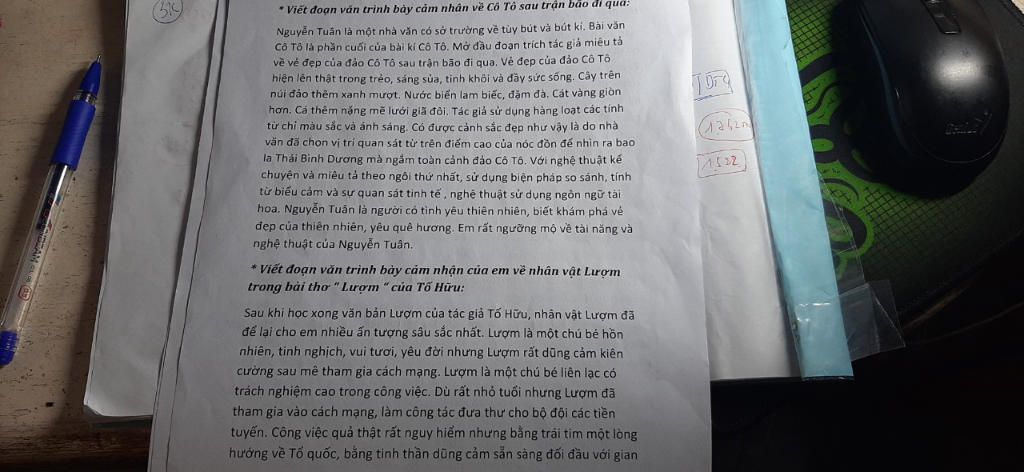 * Viết đoạn văn trình bày cảm nhân về Cô Tô sau trận bão đi qua:
Nguyễn Tuân là một nhà văn có sở trường về tùy bút và bút kí. Bài văn
Cô Tô là phần cuối của bài kí Cô Tô. Mở đầu đoạn trích tác giả miêu tả
về vẻ đẹp của đảo Cô Tô sau trận bão đi qua. Vẻ đẹp của đảo Cô Tô
hiện lên thật trong trẻo, sáng sủa, tinh khôi và đầy sức sống. Cây trên
núi đảo thêm xanh mượt. Nước biển lam biếc, đậm đà. Cát vàng giòn
hơn. Cá thêm nặng mẽ lưới giã đôi. Tác giả sử dụng hàng loạt các tính
từ chỉ màu sắc và ánh sáng. Có được cảnh sắc đẹp như vậy là do nhà
văn đã chọn vị trí quan sát từ trên điểm cao của nóc đồn để nhìn ra bao
la Thái Bình Dương mà ngắm toàn cảnh đảo Cô Tô. Với nghệ thuật kể
chuyện và miêu tả theo ngôi thứ nhất, sử dụng biện pháp so sánh, tính
từ biểu cảm và sự quan sát tinh tế , nghệ thuật sử dụng ngôn ngữ tài
hoa. Nguyễn Tuân là người có tình yêu thiên nhiên, biết khám phá vẻ
đẹp của thiên nhiên, yêu quê hương. Em rất ngưỡng mộ về tài năng và
nghệ thuật của Nguyễn Tuân.
* Viết đoạn văn trình bày cảm nhận của em về nhân vật Lượm
trong bài thơ " Lượm " của Tố Hữu:
Sau khi học xong văn bản Lượm của tác giả Tố Hữu, nhân vật Lượm đã
để lại cho em nhiều ấn tượng sâu sắc nhất. Lượm là một chú bé hồn
nhiên, tinh nghịch, vui tươi, yêu đời nhưng Lượm rất dũng cảm kiên
cường sau mê tham gia cách mạng. Lượm là một chú bé liên lạc có
trách nghiệm cao trong công việc. Dù rất nhỏ tuổi nhưng Lượm đã
tham gia vào cách mạng, làm công tác đưa thư cho bộ đội các tiền
tuyến. Công việc quả thật rất nguy hiểm nhưng bằng trái tim một lòng
hướng về Tổ quốc, bằng tinh thần dũng cảm sẵn sàng đối đầu với gian
1522
Genius